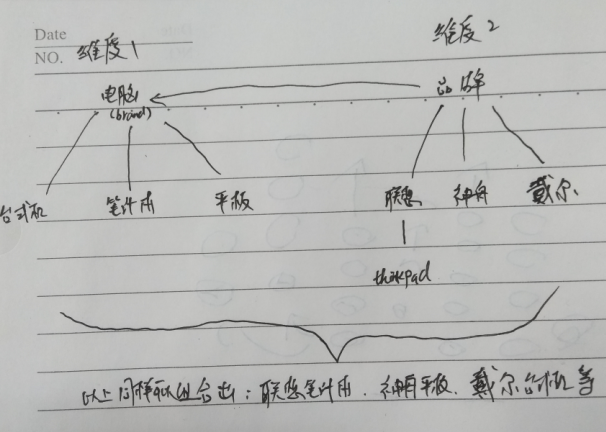 Date
NO. 维度1 维度2
电脑 品牌
(brand)
台式机 笔计本 平板 联想 神舟 戴尔
thinkpad
以上同样可以组合出:联想笔计本、神舟平板、戴尔台机等